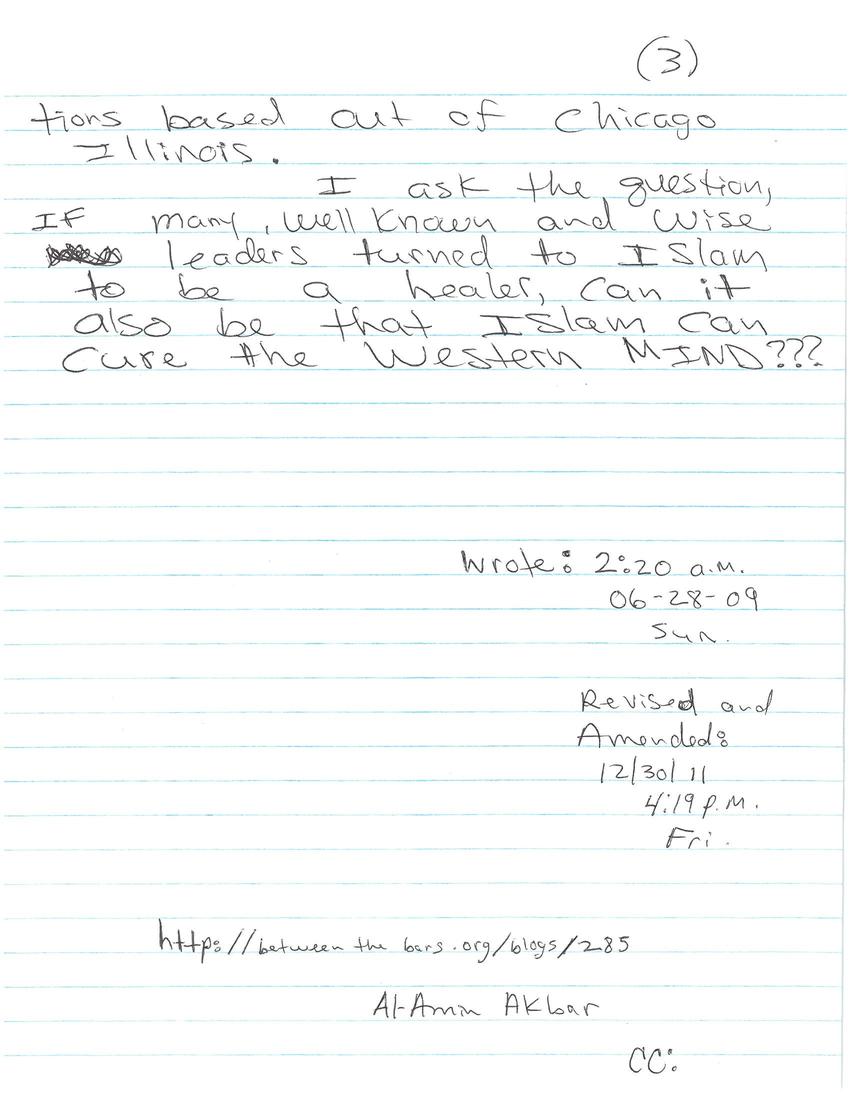 (3)
tions based out of Chicago
Illinois.
I ask the question,
IF many, well known and wise
leaders turned to ISlam
to be a healer, can it
also be that ISlam can
cure the Western MIND???
Wrote: 2:20 a.m.
06-28-09
Sun.
Revised and
Amended:
12/30/11
4:19 P.M.
Fri.
http://betweenthebars.org/blogs/285
Al-Amin Akbar
CC: